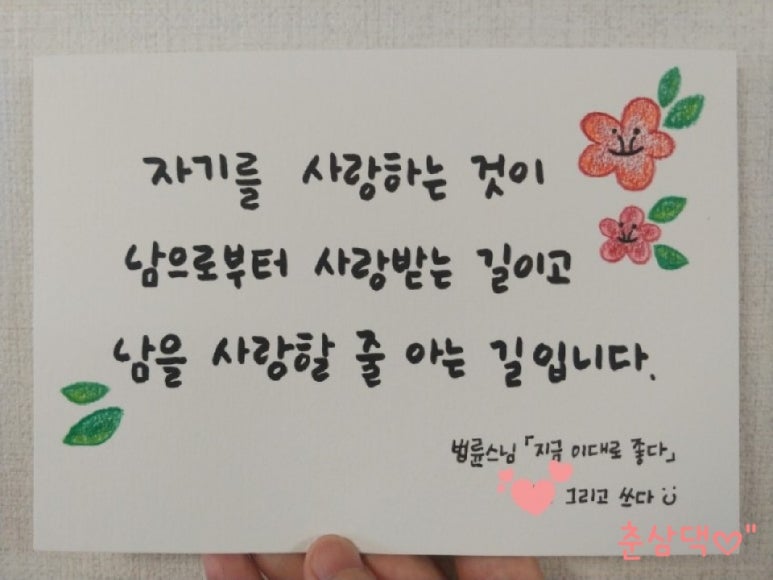 자기를 사랑하는 것이
남으로부터 사랑받는 길이고
남을 사랑할 줄 아는 길입니다.
법륜스님 「지금 이대로 좋다」
그리고 쓰다
춘삼댁♡"